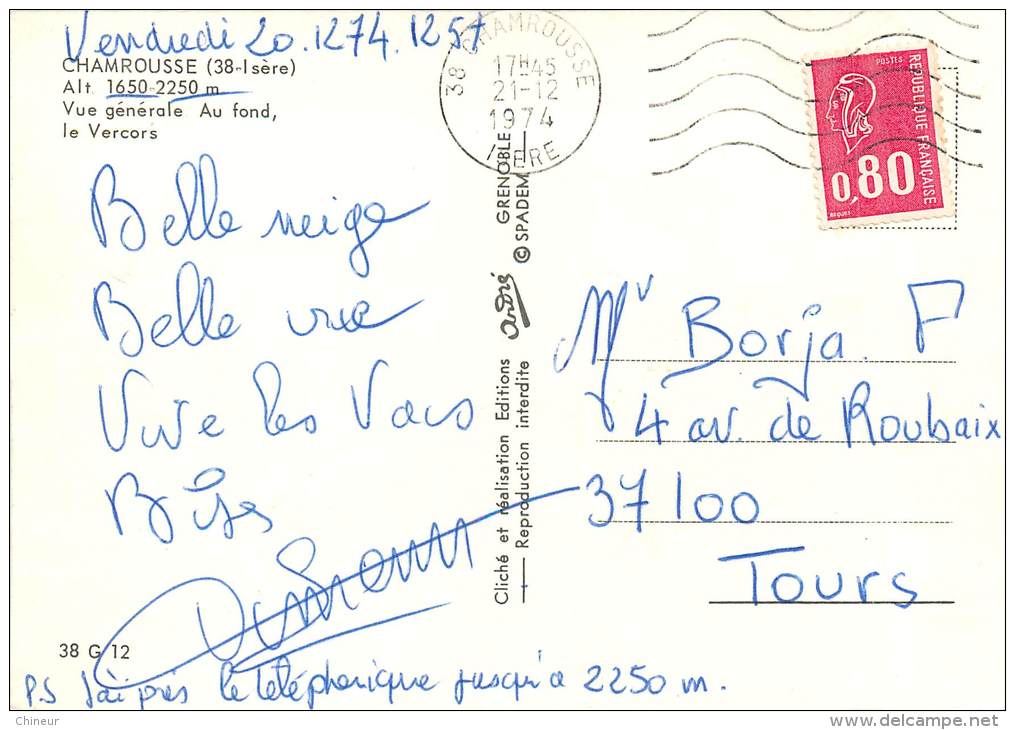 Vendredi 20.1274.1257
CHAMROUSSE (38-Isère)
Alt. 1650-2250 m
Vue générale Au fond,
le Vercors
Belle neige
Belle vue
Vive les Vacs
Bises
38 G 12
P.S J'ai pris le téléphérique jusqu'à 2250 m.
38 CHAMROUSSE
17H45
21-12
1974
ISERE
Cliché et réalisation Editions andré GRENOBLE
Reproduction interdite © SPADEM
POSTES
REPUBLIQUE FRANÇAISE
0,80
BEQUET
Mr Borja. F
4 av. de Roubaix
37100
Tours
Chineur
delcampe.net